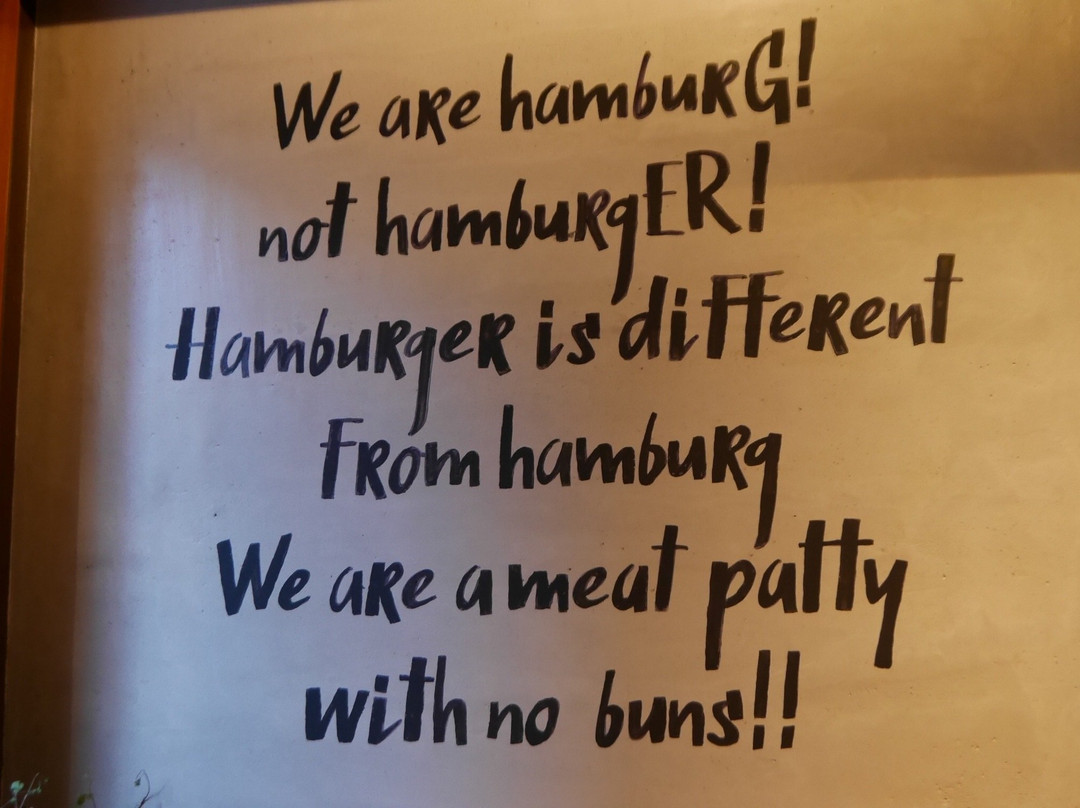 We aRe hambuRG!
not hambuRgER!
HambuRgeR is diffeRent
FRom hambuRg
We aRe a meat patty
with no buns!!